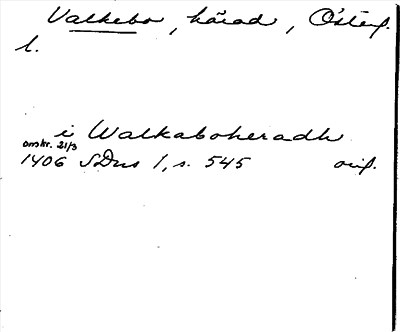 Valkebo, härad, Östерg.
l.
i Walkaboheradh
omkr. 21/3
1406 SDns 1, s. 545 orig.